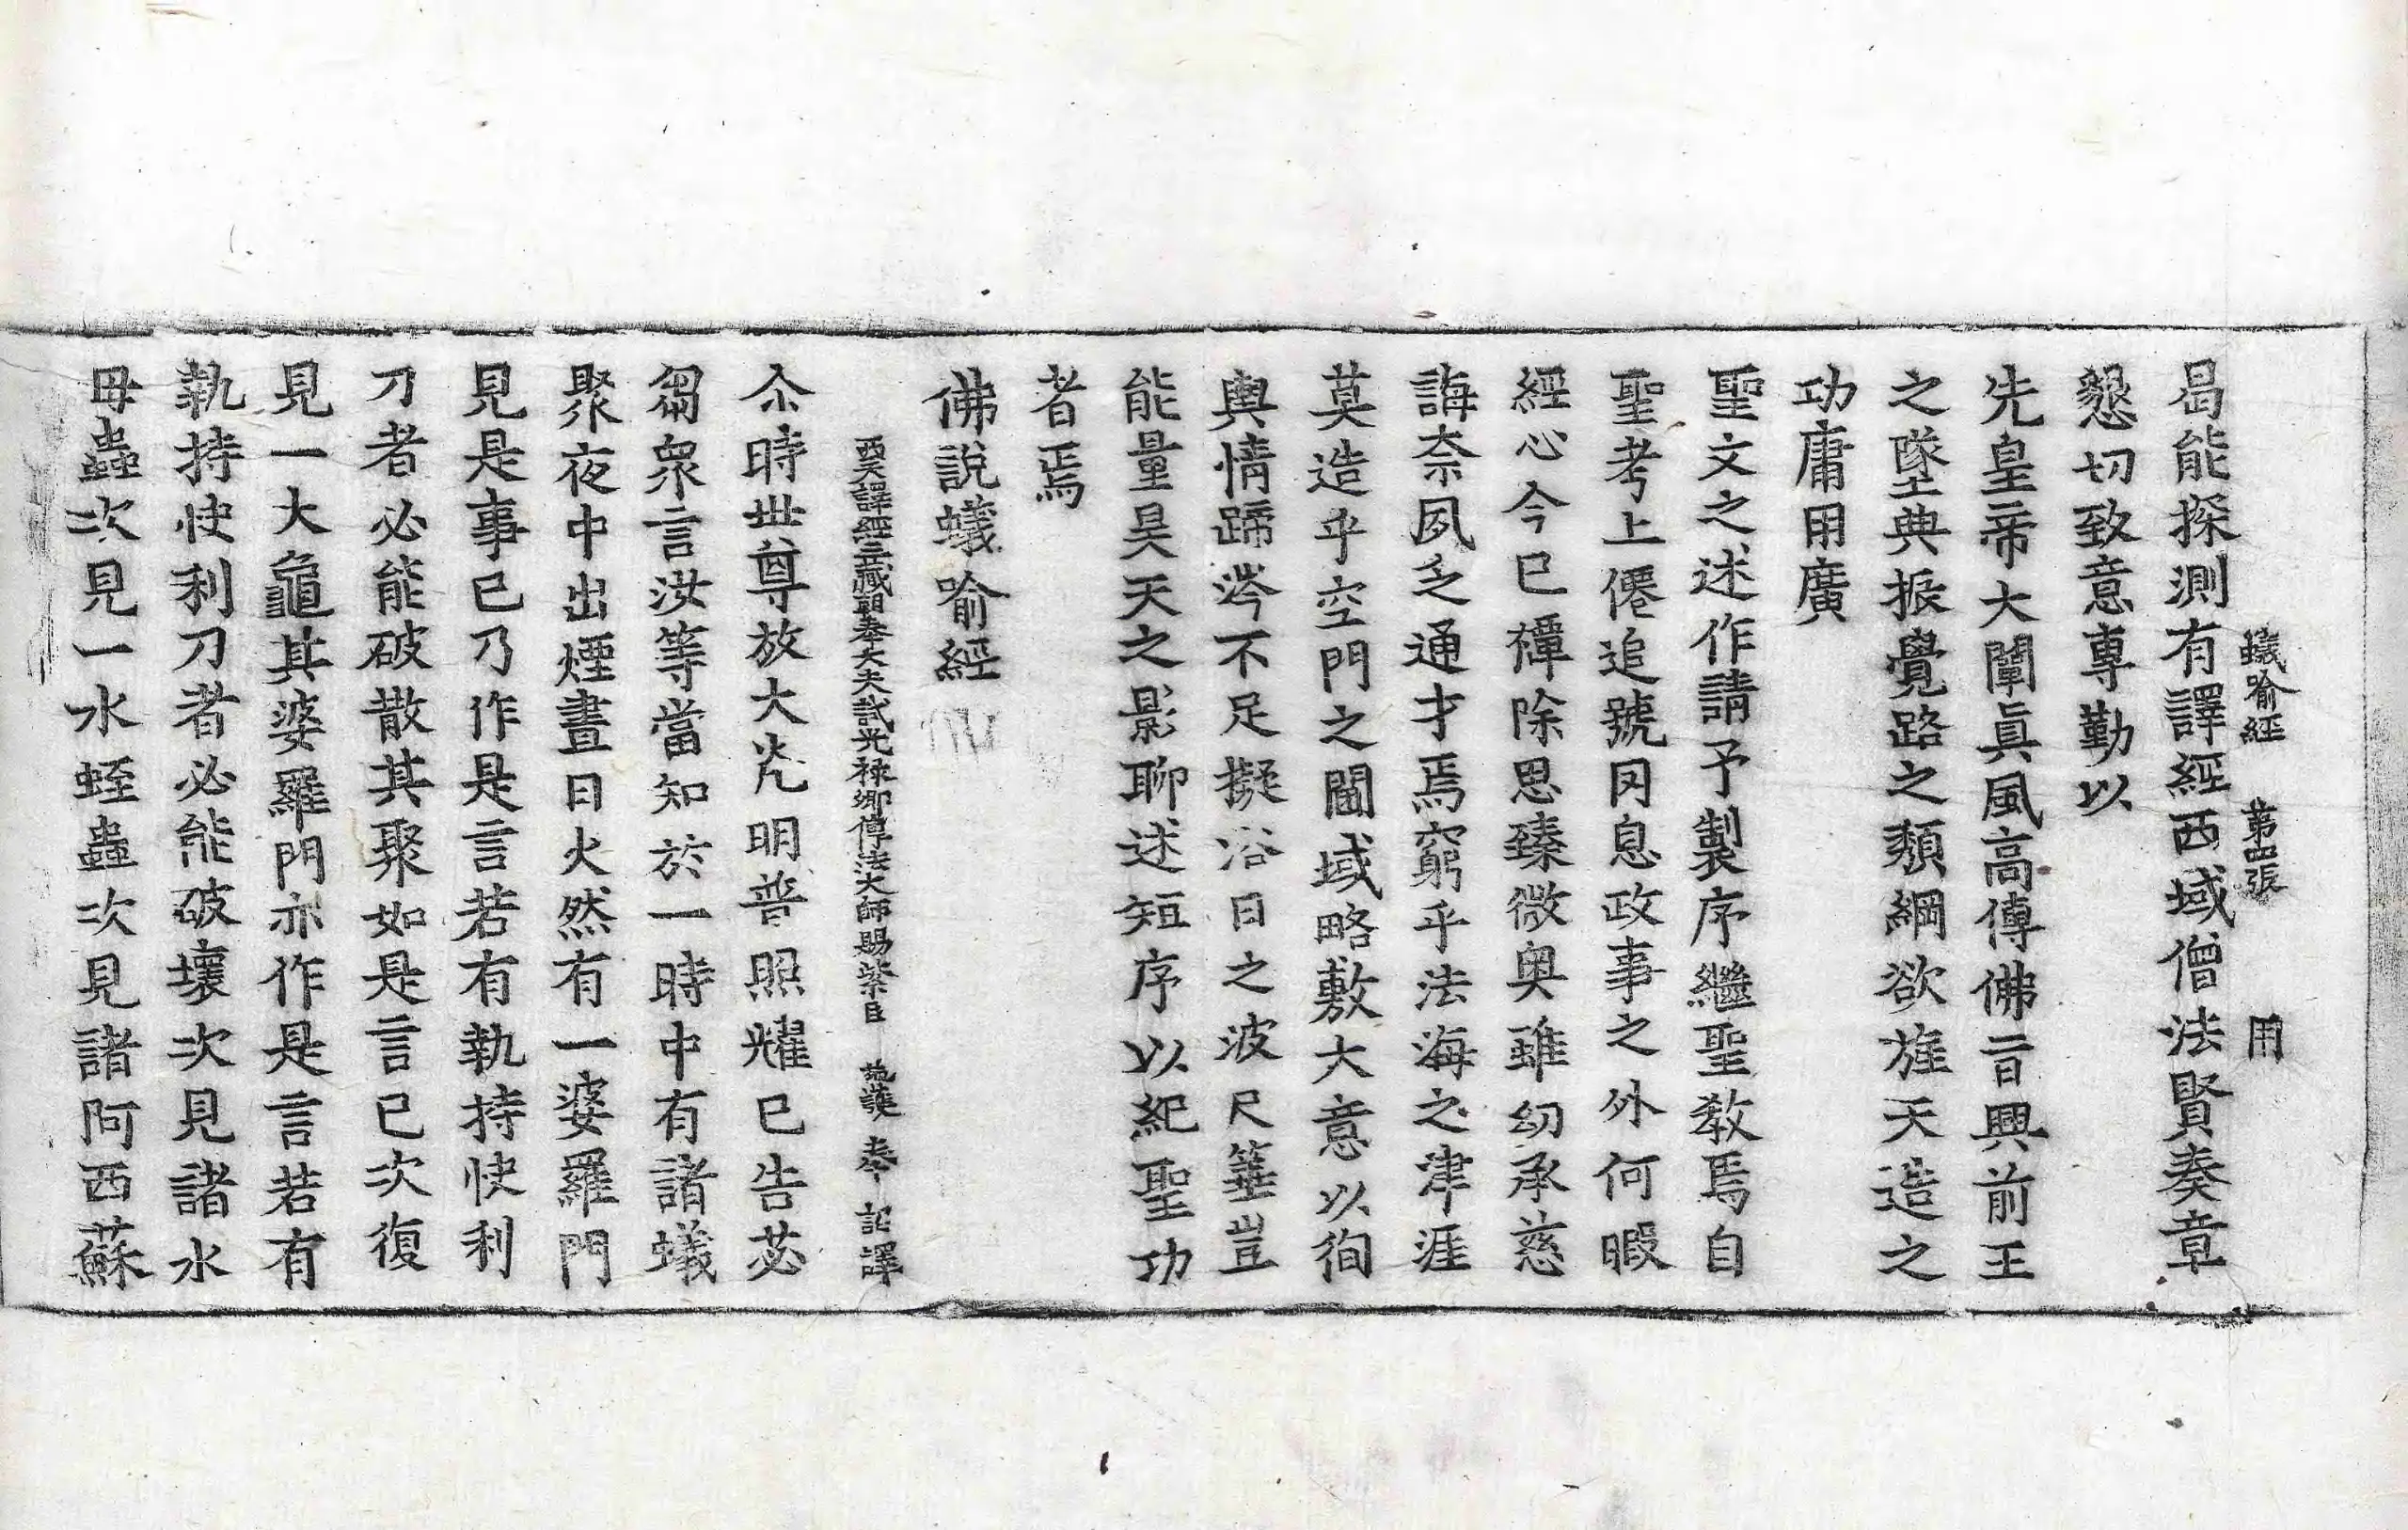 蟻喻經　第四張　用
曷能探測有譯經西域僧法賢奏章
懇切致意專勤以
先皇帝大闡眞風高傳佛旨興前王
之墜典振覺路之頹綱欲旌天造之
功庸用廣
聖文之述作請予製序繼聖教焉自
聖考上僊追號罔息政事之外何暇
經心今已禫除思臻微奧雖幼承慈
誨柰夙乏通才焉窮乎法海之津涯
莫造乎空門之閫域略敷大意以徇
輿情蹄涔不足擬浴日之波尺箠豈
能量昊天之影聊述短序以紀聖功
者焉
佛說蟻喻經
西天譯經三藏朝奉大夫試光祿卿傳法大師賜紫臣　施護　奉　詔譯
尒時世尊放大光明普照耀已告苾
芻衆言汝等當知於一時中有諸蟻
聚夜中出煙晝日火然有一婆羅門
見是事已乃作是言若有執持快利
刀者必能破散其聚如是言已次復
見一大龜其婆羅門亦作是言若有
執持快利刀者必能破壞次見諸水
母蟲次見一水蛭蟲次見諸阿西蘇